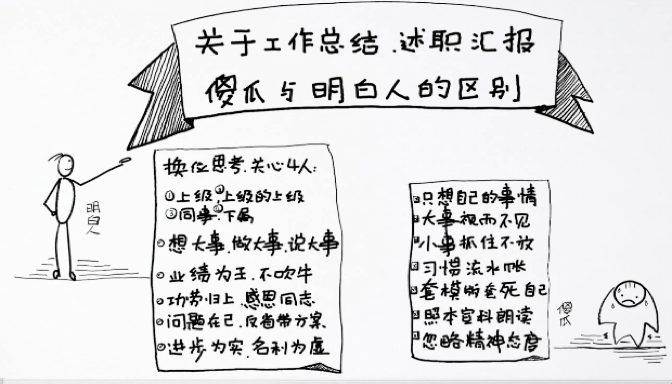 关于工作总结.述职汇报
傻瓜与明白人的区别
换位思考.关心4人:
①上级②上级的上级
③同事④下属
想大事.做大事.说大事
业绩为王.不吹牛
功劳归上.感恩同志
问题在己.反省带方案
进步为实.名利为虚
明白人
只想自己的事情
大事视而不见
小事抓住不放
习惯流水帐
套模版套死自己
照本宣科朗读
忽略精神态度
傻瓜